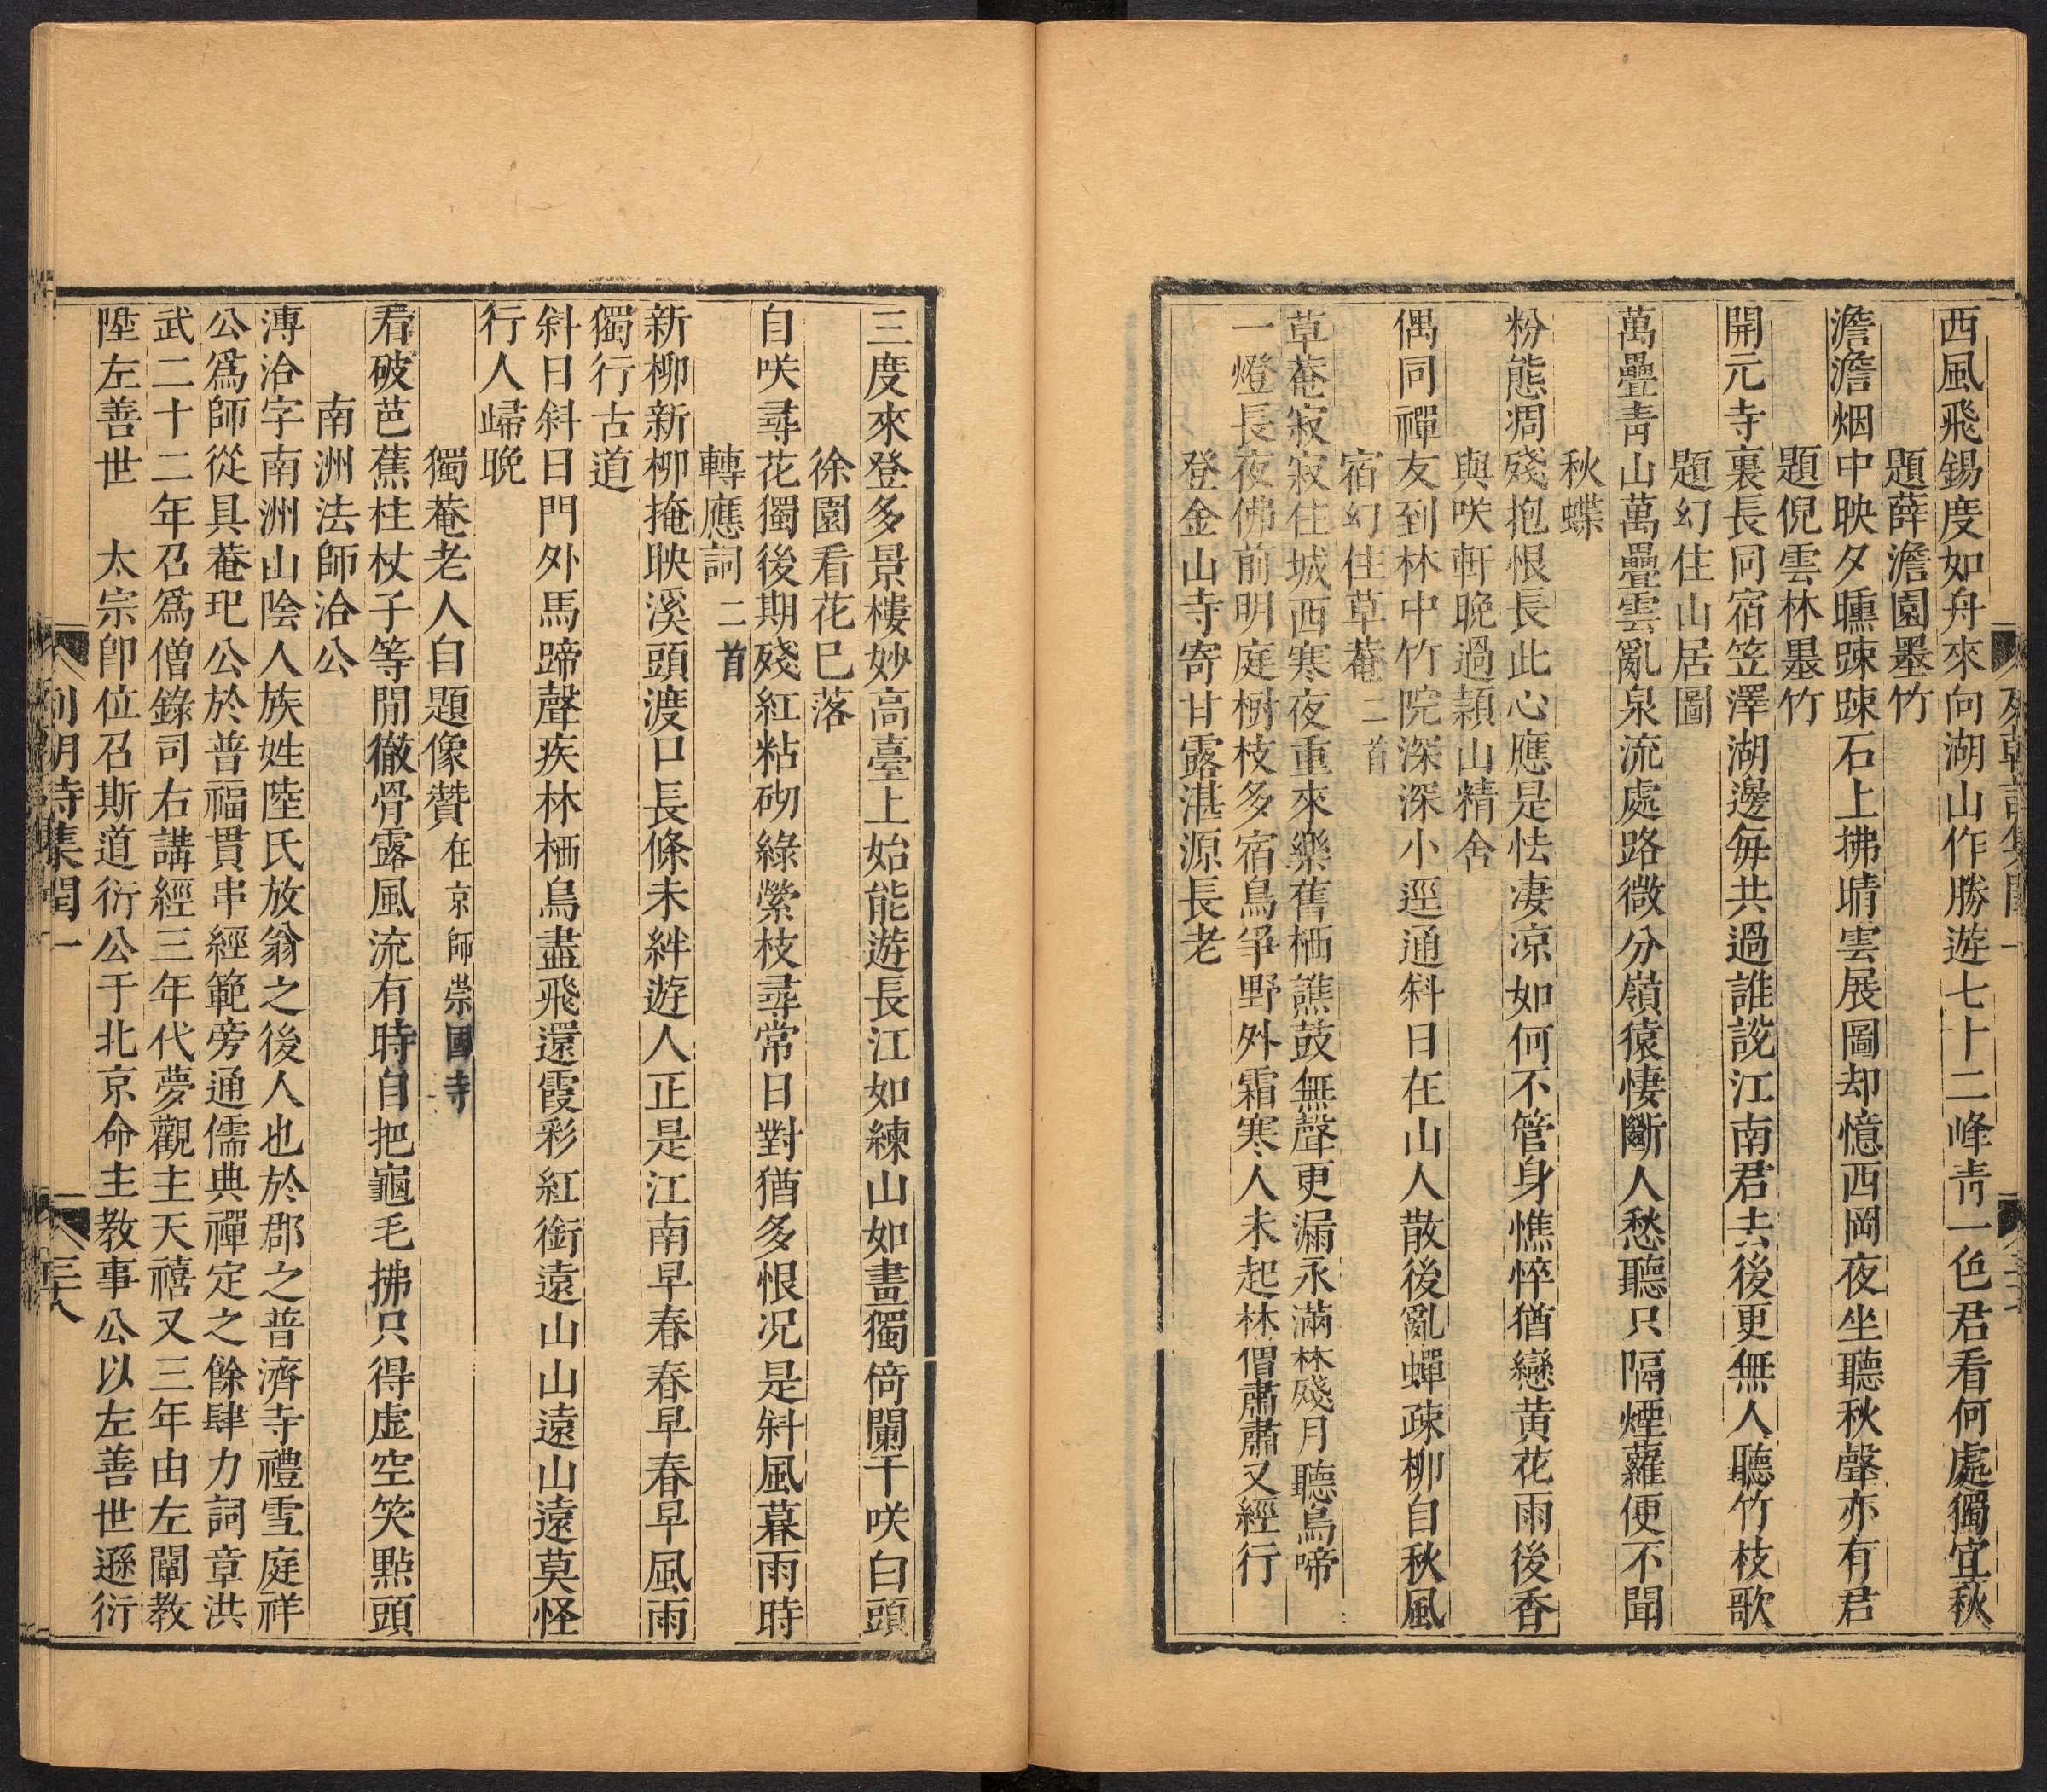 西風飛錫度如舟來向湖山作勝遊七十二峰靑一色君看何處獨宜秋
題薛澹園墨竹
澹澹烟中映夕曛踈踈石上拂晴雲展圖却憶西岡夜坐聽秋聲亦有君
題倪雲林墨竹
開元寺裏長同宿笠澤湖邊每共過誰說江南君去後更無人聽竹枝歌
題幻住山居圖
萬疊靑山萬疊雲亂泉流處路微分嶺猿悽斷人愁聽只隔煙蘿便不聞
秋蝶
粉態凋殘抱恨長此心應是怯凄凉如何不管身憔悴猶戀黃花雨後香
與咲軒晚過穎山精舍
偶同禪友到林中竹院深深小逕通斜日在山人散後亂蟬疎柳自秋風
宿幻住草菴二首
草菴寂寂住城西寒夜重來樂舊栖譙鼓無聲更漏永滿林殘月聽烏啼
一燈長夜佛前明庭樹枝多宿鳥爭野外霜寒人未起林僧肅肅又經行
登金山寺寄甘露湛源長老
三度來登多景樓妙高臺上始能遊長江如練山如畫獨倚闌干咲白頭
徐園看花巳落
自咲尋花獨後期殘紅粘砌綠縈枝尋常日對猶多恨况是斜風暮雨時
轉應詞二首
新柳新柳掩映溪頭渡口長條未絆遊人正是江南早春春早春早風雨
獨行古道
斜日斜日門外馬蹄聲疾林栖鳥盡飛還霞彩紅銜遠山山遠山遠莫怪
行人歸晚
獨菴老人自題像贊在京師崇國寺
看破芭蕉柱杖子等閒徹骨露風流有時自把龜毛拂只得虛空笑點頭
南洲法師洽公
溥洽字南洲山陰人族姓陸氏放翁之後人也於郡之普濟寺禮雪庭祥
公爲師從具菴玘公於普福貫串經範旁通儒典禪定之餘肆力詞章洪
武二十二年召爲僧錄司右講經三年代夢觀主天禧又三年由左闡教
陞左善世　太宗卽位召斯道衍公于北京命主教事公以左善世遜衍
列朝詩集閏一
三十八